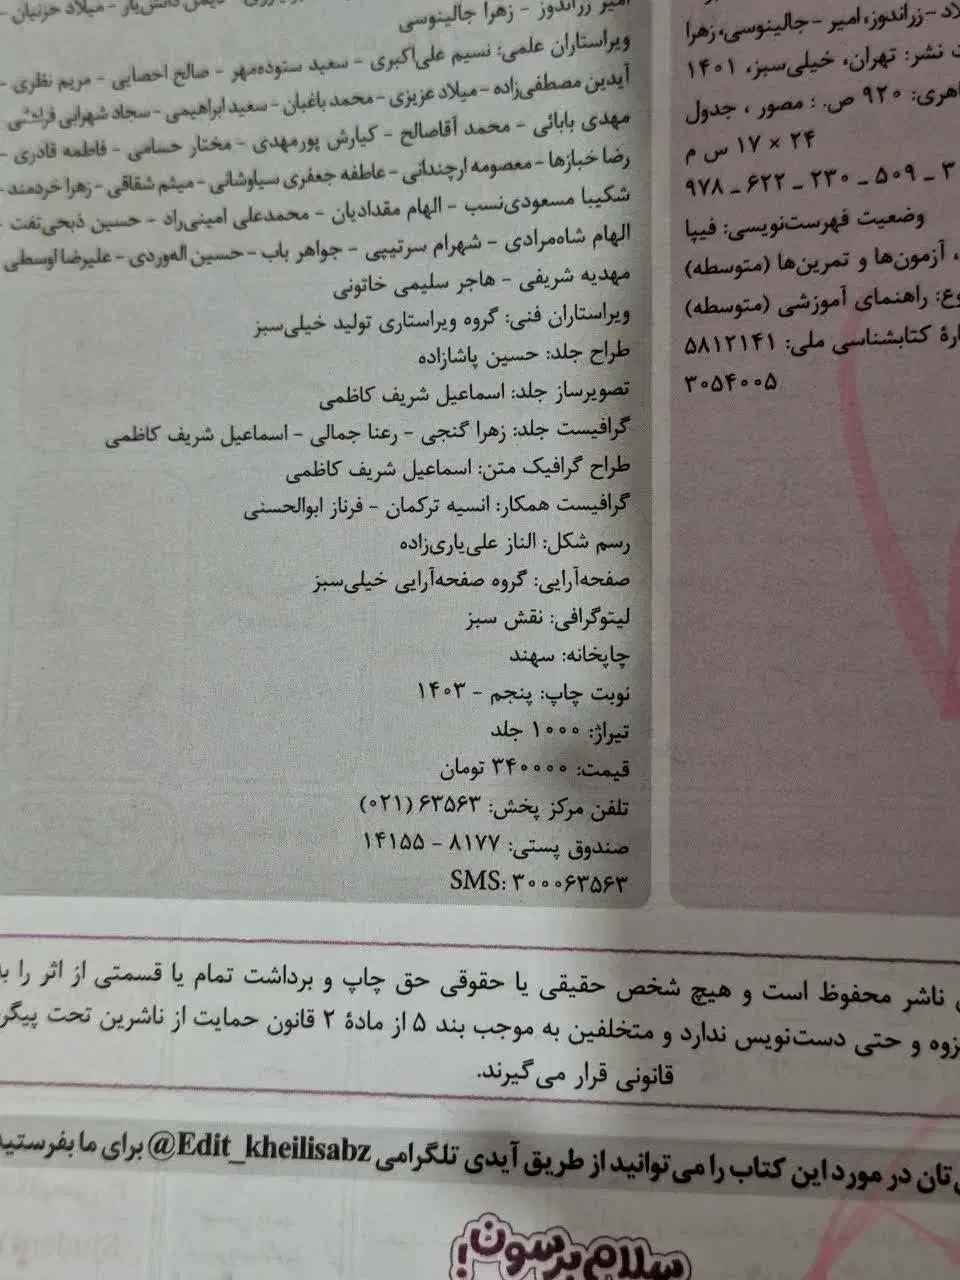 زراندوز، امیر - جالینوسی، زهرا
نشر: تهران، خیلی‌سبز، ۱۴۰۱
۹۲۰ ص. : مصور ، جدول
۲۴ × ۱۷ س م
۹۷۸ ـ ۶۲۲ ـ ۲۳۰ ـ ۵۰۹ ـ ۳
وضعیت فهرست‌نویسی: فیپا
، آزمون‌ها و تمرین‌ها (متوسطه)
راهنمای آموزشی (متوسطه)
کتابشناسی ملی: ۵۸۱۲۱۴۱
۳۰۵۴۰۰۵
امیر زراندوز - زهرا جالینوسی
ویراستاران علمی: نسیم علی‌اکبری - سعید ستوده‌مهر - صالح احصایی - مریم نظری -
آیدین مصطفی‌زاده - میلاد عزیزی - محمد باغبان - سعید ابراهیمی - سجاد شهرابی فراهانی
مهدی بابائی - محمد آقاصالح - کیارش پورمهدی - مختار حسامی - فاطمه قادری -
رضا خبازها - معصومه ارچندانی - عاطفه جعفری سیاوشانی - میثم شقاقی - زهرا خردمند -
شکیبا مسعودی‌نسب - الهام مقدادیان - محمدعلی امینی‌راد - حسین ذبحی‌تفت -
الهام شاه‌مرادی - شهرام سرتیپی - جواهر باب - حسین اله‌وردی - علیرضا اوسطی
مهدیه شریفی - هاجر سلیمی خاتونی
ویراستاران فنی: گروه ویراستاری تولید خیلی‌سبز
طراح جلد: حسین پاشازاده
تصویرساز جلد: اسماعیل شریف کاظمی
گرافیست جلد: زهرا گنجی - رعنا جمالی - اسماعیل شریف کاظمی
طراح گرافیک متن: اسماعیل شریف کاظمی
گرافیست همکار: انسیه ترکمان - فرناز ابوالحسنی
رسم شکل: الناز علی‌یاری‌زاده
صفحه‌آرایی: گروه صفحه‌آرایی خیلی‌سبز
لیتوگرافی: نقش سبز
چاپخانه: سهند
نوبت چاپ: پنجم - ۱۴۰۳
تیراژ: ۱۰۰۰ جلد
قیمت: ۳۴۰۰۰۰ تومان
تلفن مرکز پخش: ۶۳۵۶۳ (۰۲۱)
صندوق پستی: ۸۱۷۷ - ۱۴۱۵۵
SMS: ۳۰۰۰۶۳۵۶۳
ناشر محفوظ است و هیچ شخص حقیقی یا حقوقی حق چاپ و برداشت تمام یا قسمتی از اثر را
و حتی دست‌نویس ندارد و متخلفین به موجب بند ۵ از مادهٔ ۲ قانون حمایت از ناشرین تحت
قانونی قرار می‌گیرند.
در مورد این کتاب را می‌توانید از طریق آیدی تلگرامی @Edit_kheilisabz برای ما بفرستید
سلام برسون!